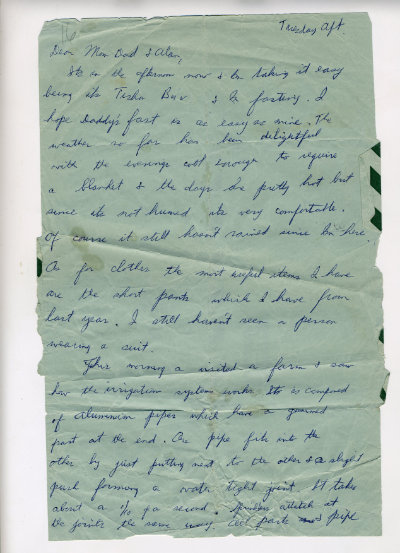 16
Tuesday Aft.
Dear Mom Dad & Alan,
Its in the afternoon now & Im taking it easy
being its Tisha Bav & Im fasting. I
hope Daddy's fast is as easy as mine. The
weather so far has been delightful
with the evenings cool enough to require
a blanket & the days are pretty hot but
since its not humid its very comfortable.
Of course it still hasn't rained since Im here.
As for clothes the most useful items I have
are the short pants which I have from
last year. I still haven't seen a person
wearing a suit.
This morning I visited a farm & saw
how the irrigation system works. Its composed
of aluminium pipes which have a
part at the end. One pipe fits into the
other by just putting next to the other & a slight
push forming a water tight joint. It takes
about a ½ a second. attach at
the joints the same way, pipe